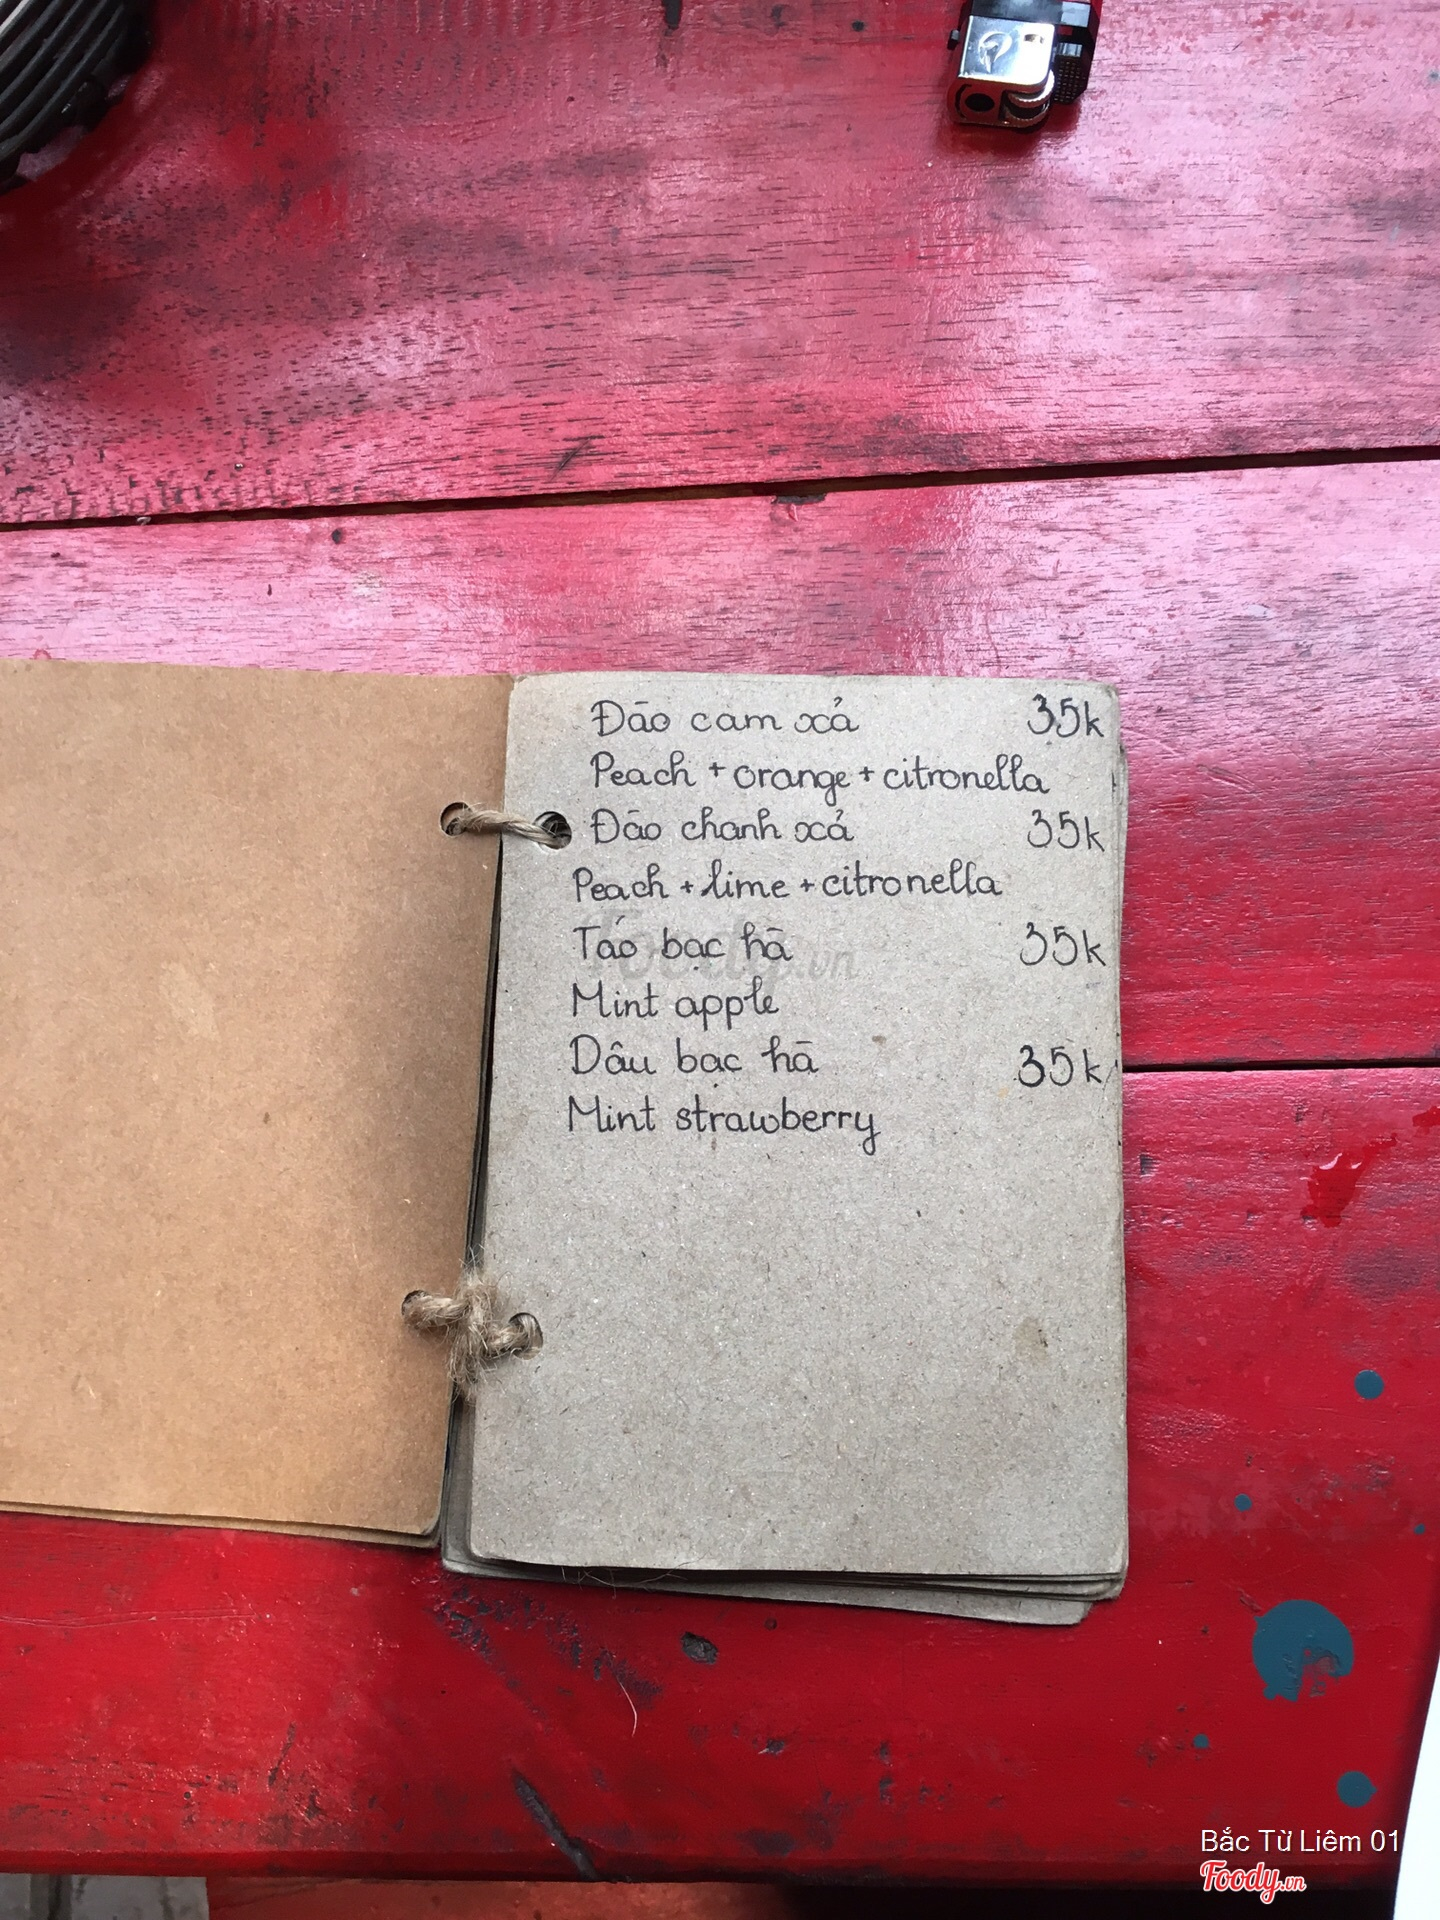 Đào cam xả 35k
Peach + orange + citronella
Đào chanh xả 35k
Peach + lime + citronella
Táo bạc hà 35k
Mint apple
Dâu bạc hà 35k
Mint strawberry
Foody.vn
Bắc Từ Liêm 01
Foody.vn